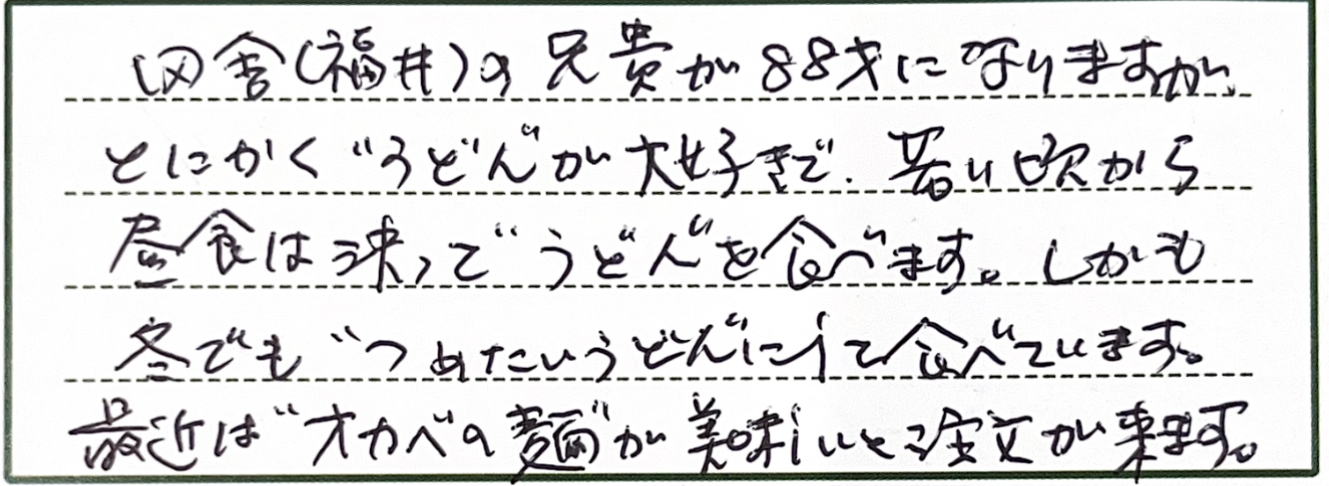 田舎(福井)の兄貴が88才になりますが、
とにかく“うどん”が大好きで、若い頃から
昼食は決って“うどん”を食べます。しかも
冬でも“つめたいうどん”にして食べています。
最近は“オカベの麺”が美味しいと注文が来ます。